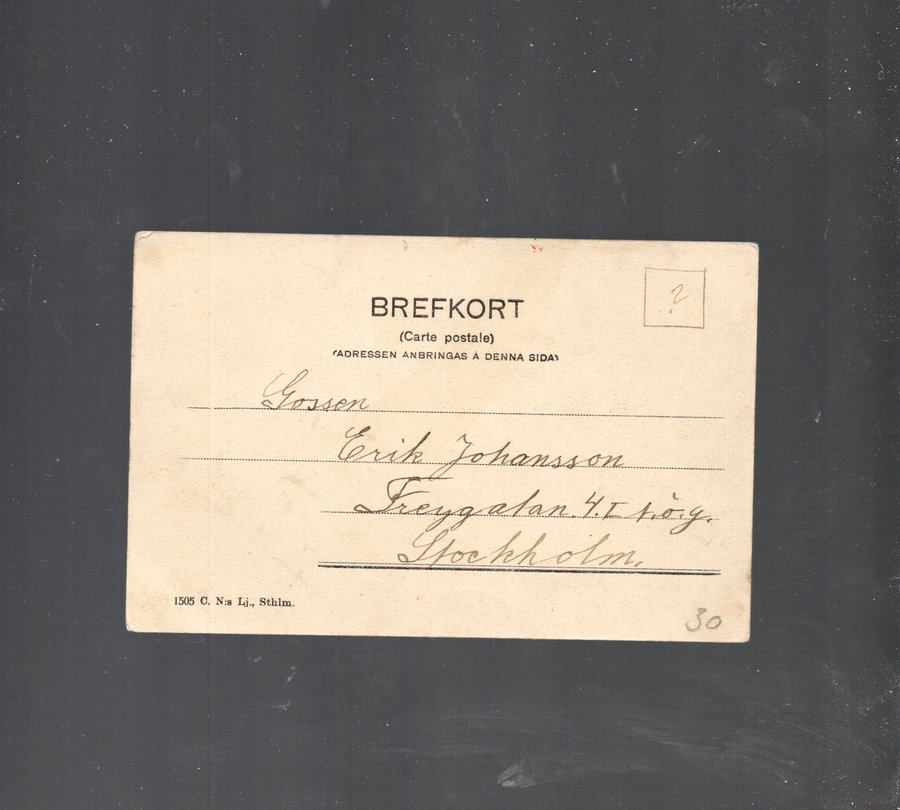 BREFKORT
(Carte postale)
(ADRESSEN ANBRINGAS Å DENNA SIDA)
?
Gossen
Erik Johansson
Freygatan. 4. I t. ö. g.
Stockholm.
1505 C. N:s Lj., Sthlm.
30